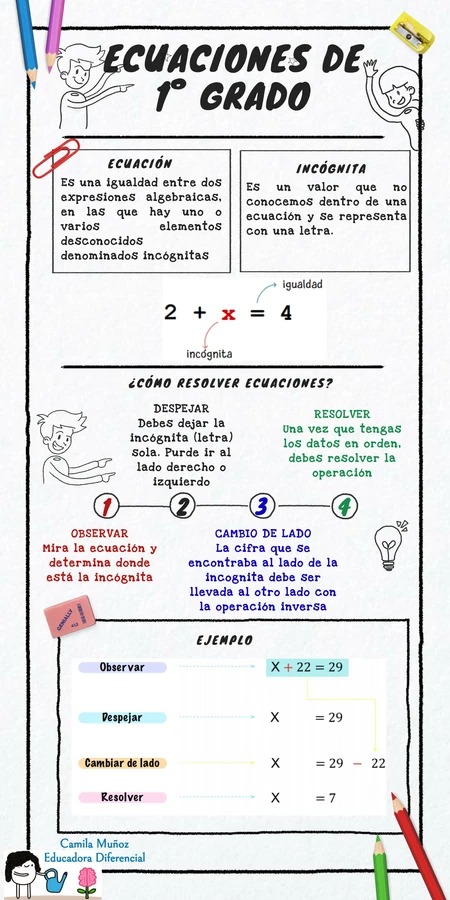 ECUACIONES DE
1° GRADO
ECUACIÓN
Es una igualdad entre dos
expresiones algebraicas,
en las que hay uno o
varios elementos
desconocidos
denominados incógnitas
INCÓGNITA
Es un valor que no
conocemos dentro de una
ecuación y se representa
con una letra.
igualdad
2 + x = 4
incógnita
¿CÓMO RESOLVER ECUACIONES?
DESPEJAR
Debes dejar la
incógnita (letra)
sola. Purde ir al
lado derecho o
izquierdo
RESOLVER
Una vez que tengas
los datos en orden,
debes resolver la
operación
1 2 3 4
OBSERVAR
Mira la ecuación y
determina donde
está la incógnita
CAMBIO DE LADO
La cifra que se
encontraba al lado de la
incognita debe ser
llevada al otro lado con
la operación inversa
EJEMPLO
Observar X + 22 = 29
Despejar X = 29
Cambiar de lado X = 29 − 22
Resolver X = 7
Camila Muñoz
Educadora Diferencial